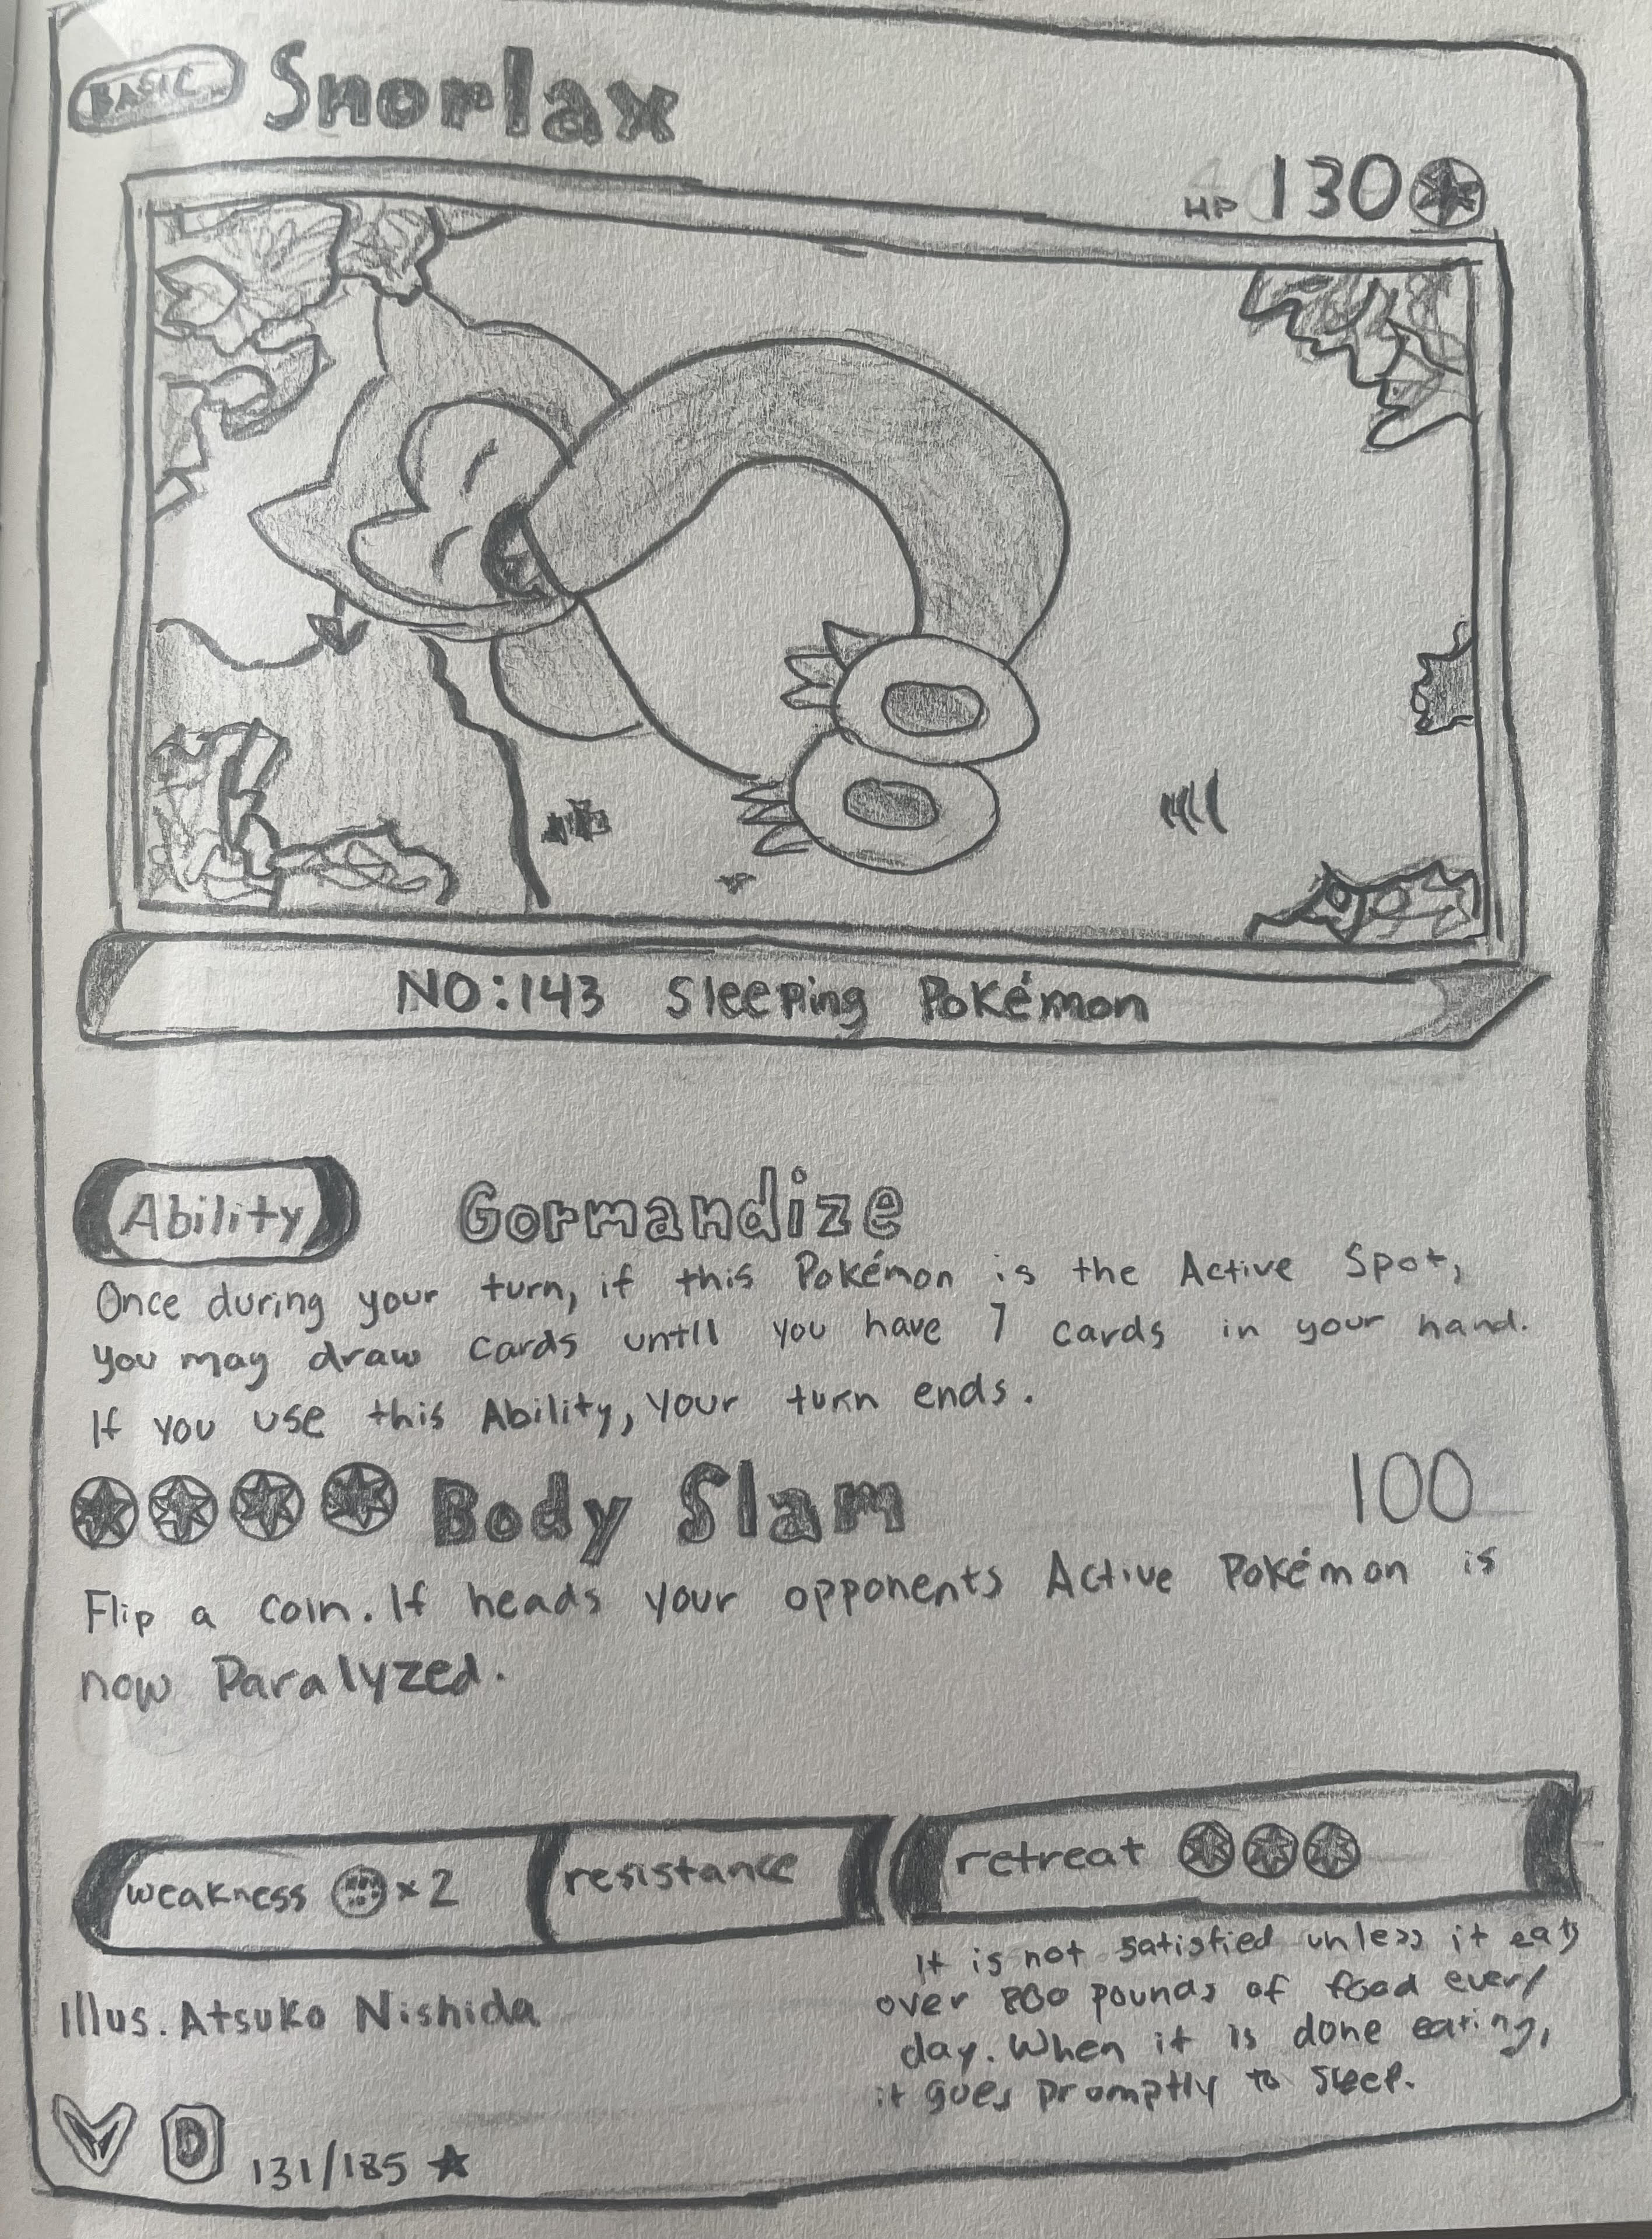 BASIC Snorlax
HP 130
NO:143 Sleeping Pokémon
Ability Gormandize
Once during your turn, if this Pokémon is the Active Spot,
you may draw cards until you have 7 cards in your hand.
If you use this Ability, your turn ends.
Body Slam 100
Flip a coin. If heads your opponents Active Pokémon is
now Paralyzed.
weakness ×2 resistance retreat
It is not satisfied unless it eats
over 880 pounds of food every
day. When it is done eating,
it goes promptly to sleep.
Illus. Atsuko Nishida
D 131/185 ★